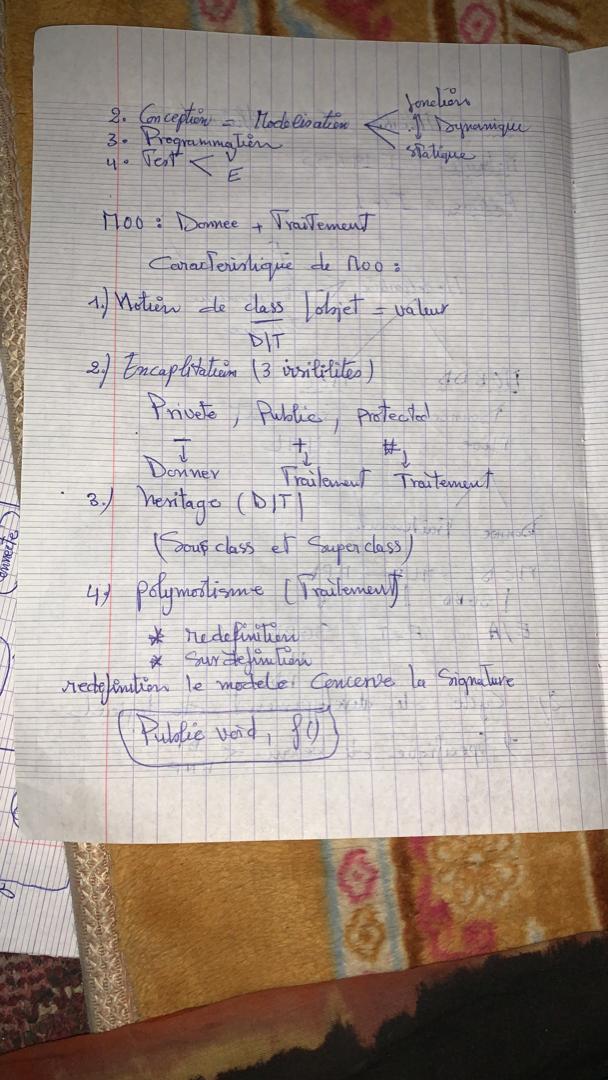 2. Conception = Modelisation < fonction
↕ Dynamique
statique
3. Programmation
4. Test < V
E
MOO : Donnee + Traitement
Caracteristique de MOO :
1.) Notion de class | objet = valeur
D|T
2.) Encaplitation (3 visilites)
Privete, Public, protected
- + #
↓ ↓ ↓
Donner Traitement Traitement
3.) heritage (D|T)
(Sous class et Super class)
4) polymostisme (Traitement)
* redefinition
* Surdefinition
redefinition le modele: Concerve la Signature
Public void, f()
onnecte